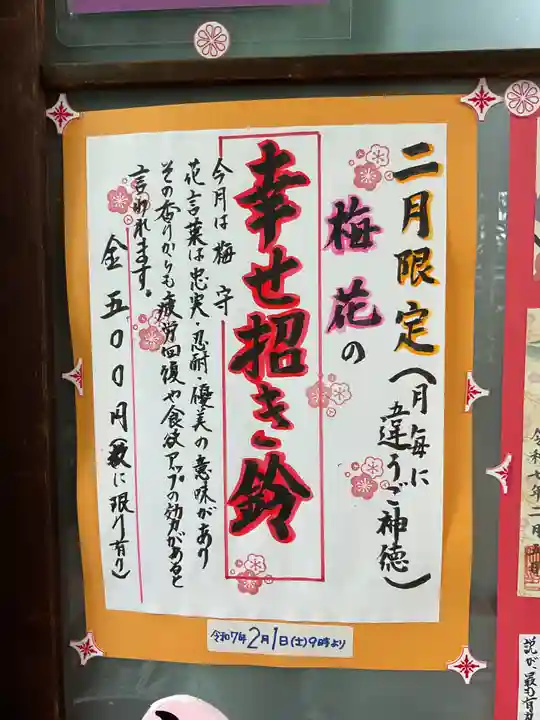 二月限定(月毎に
違うご神徳)
梅花の
幸せ招き鈴
今月は梅守
花言葉は忠実・忍耐・優美の意味があり
その香りからも疲労回復や食欲アップの効力があると
言われます。
金五〇〇円(数に限り有り)
令和7年2月1日(土)9時より
令和七年二月